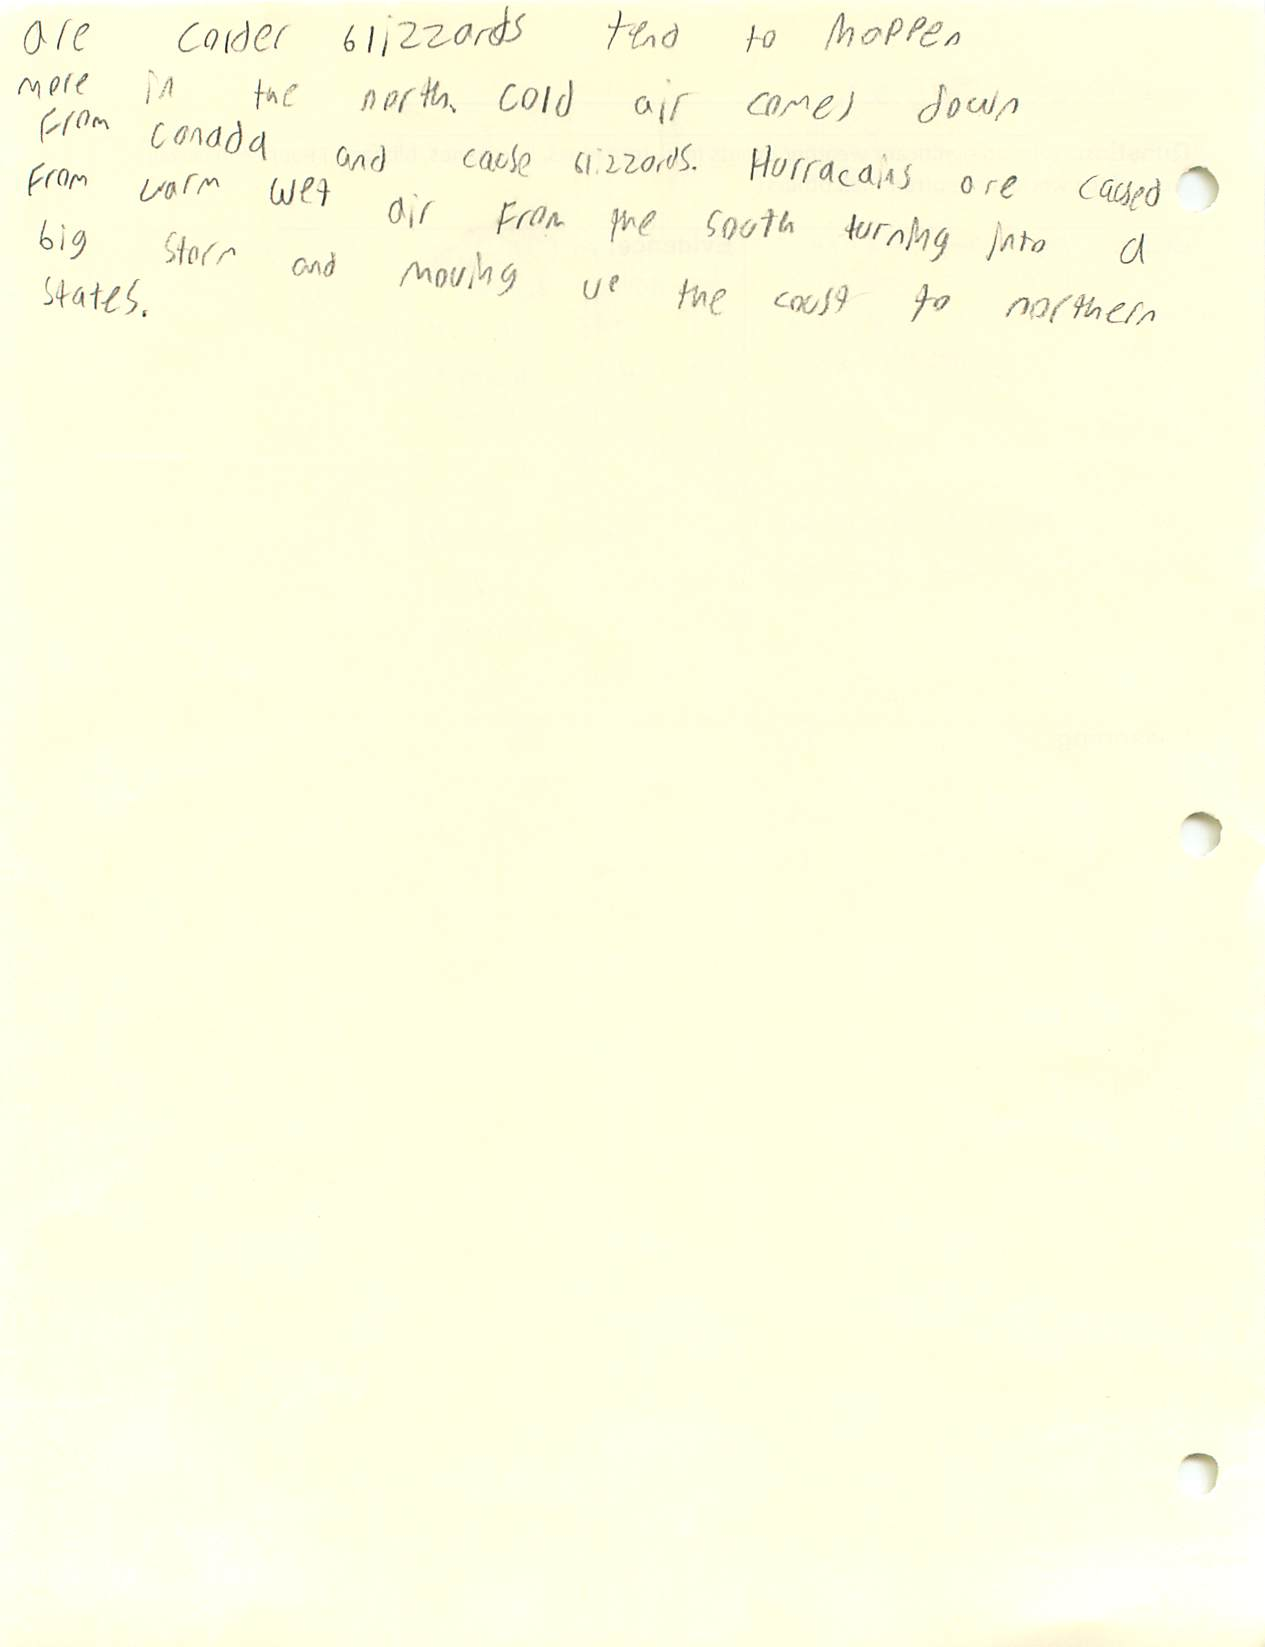 are colder blizzards tend to happen
more in the north. cold air comes down
From canada and cause blizzards. Hurracains are caused
From warm wet air From the south turning into a
big storm and moving up the coust to northern
states.